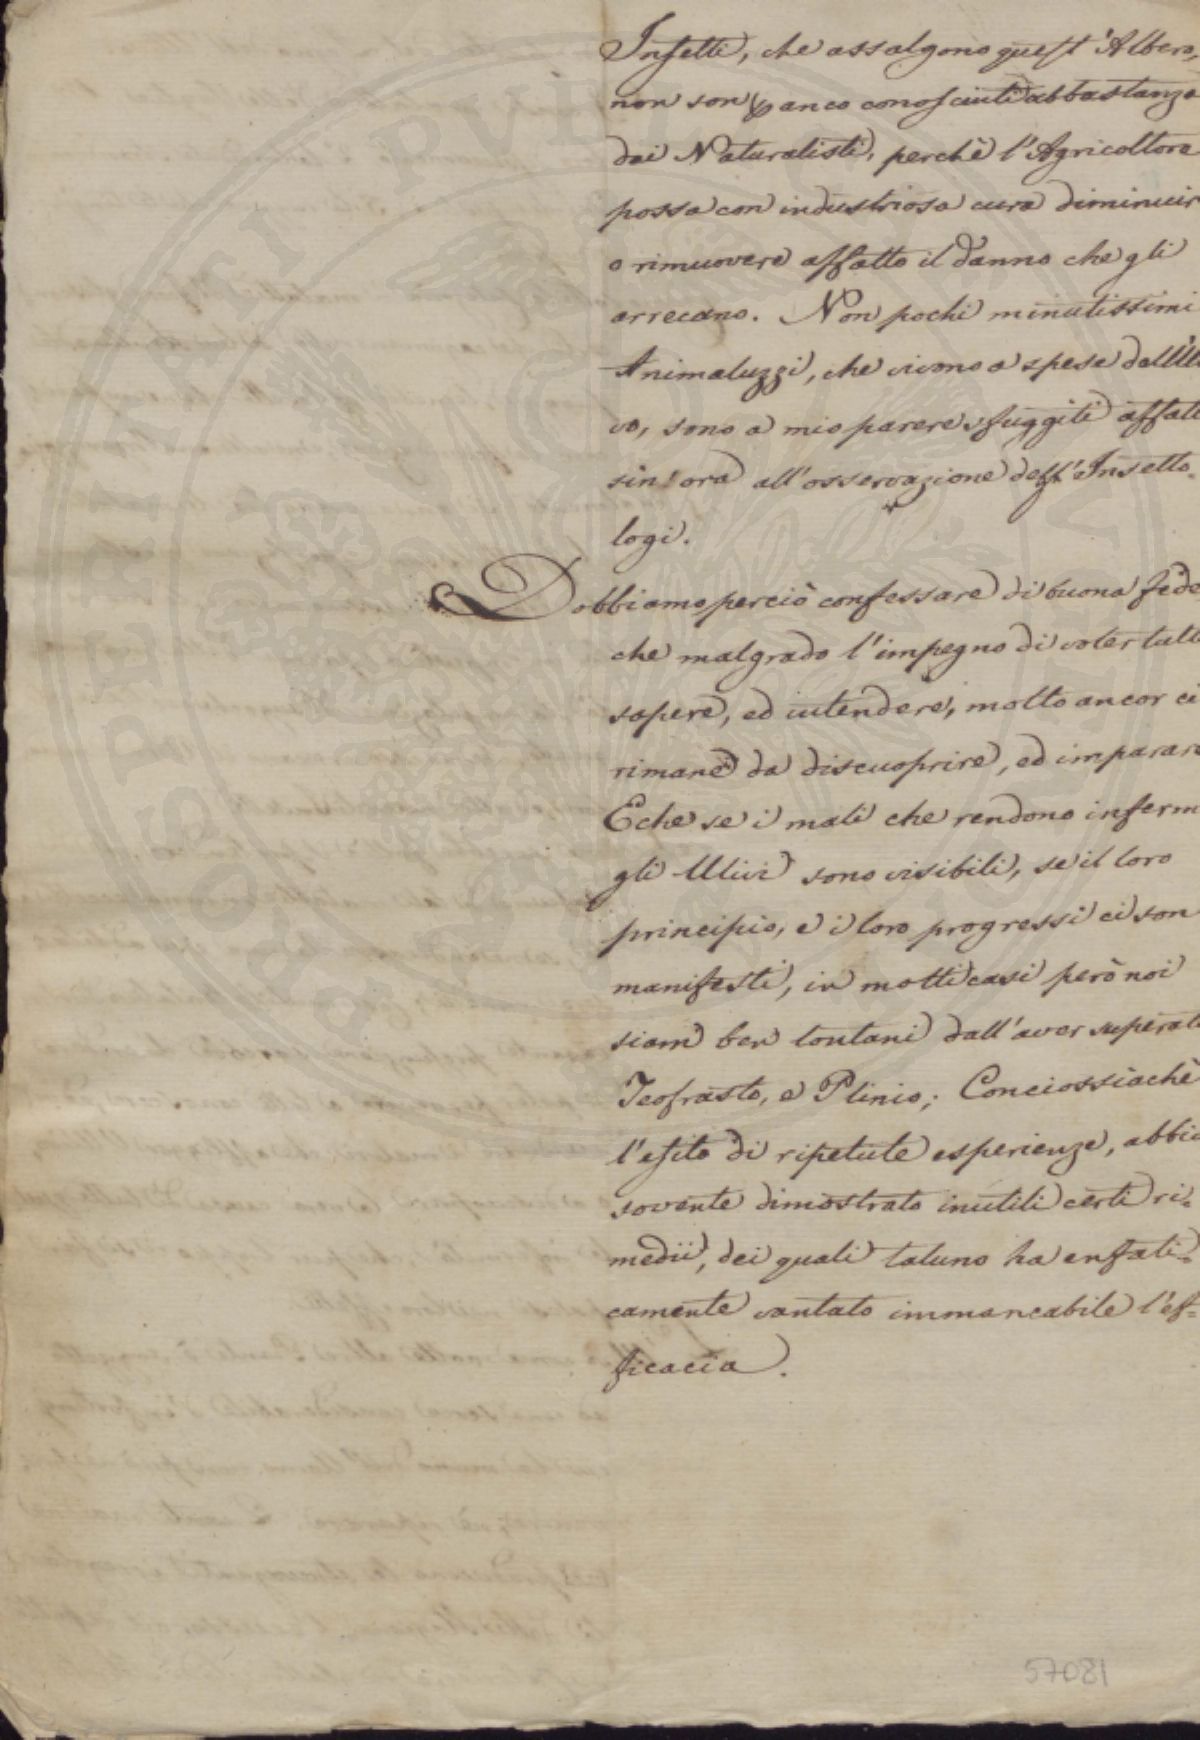 Insetti, che assalgono quest'Albero,
non son panco conosciuti abbastanza
dai Naturalisti, perchè l'Agricoltore
possa con industriosa cura diminuir
o rimuovere affatto il danno che gli
arrecano. Non pochi minutissimi
Animaluzzi, che vivono a spese dell'Uli
vo, sono a mio parere sfuggiti affatt
sin'ora all'osservazione degl'Insetto-
logi.
Dobbiamo perciò confessare di buona fede
che malgrado l'impegno di voler tutto
sapere, ed intendere, molto ancor ci
rimane da discuoprire, ed imparare
E che se i mali che rendono inferm
gli Ulivi sono visibili, se il loro
principio, e i loro progressi ci son
manifesti, in molti casi però noi
siam ben lontani dall'aver superato
Teofrasto, e Plinio; Conciossiachè
l'esito di ripetute esperienze, abbia
sovente dimostrato inutili certi ri-
medii, dei quali taluno ha enfati-
camente vantato immancabile l'ef=
ficacia.
57081